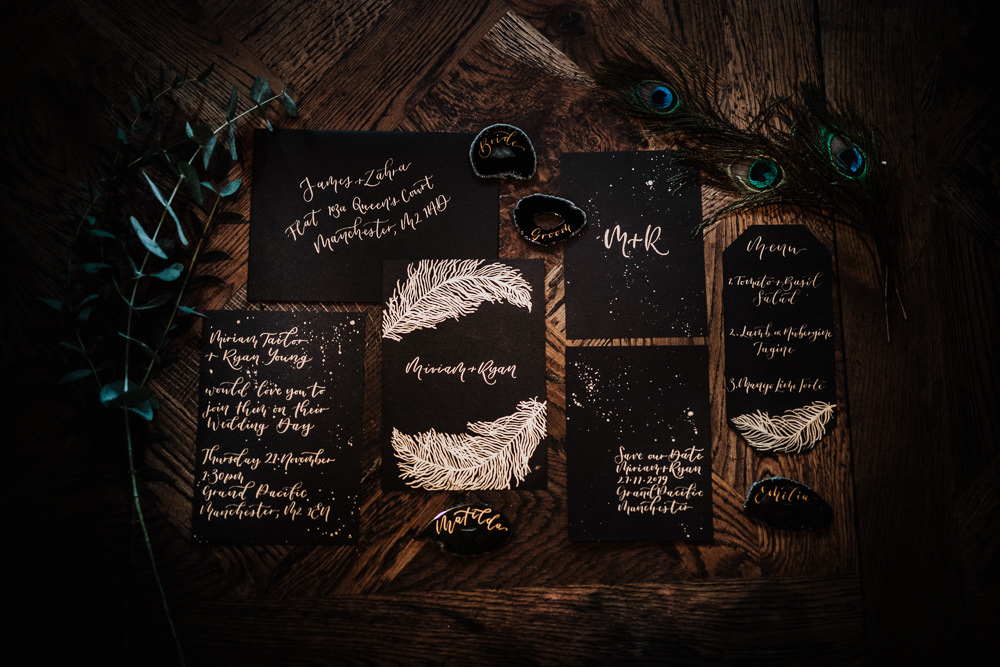 Bride
Groom
James + Zahra
Flat 103a Queen's Court
Manchester, M2 1AD
M+R
Menu
1. Tomato + Basil
Salad
2. Lamb or Aubergine
Tagine
3. Mange Liche Torte
Miriam Tailor
+ Ryan Young
would love you to
join them on their
Wedding Day
Thursday 21 November
1:30pm
Grand Pacific
Manchester, M2 1EN
Miriam + Ryan
Save our Date
Miriam + Ryan
21·11·2019
Grand Pacific
Manchester
Matilda
Emhilia